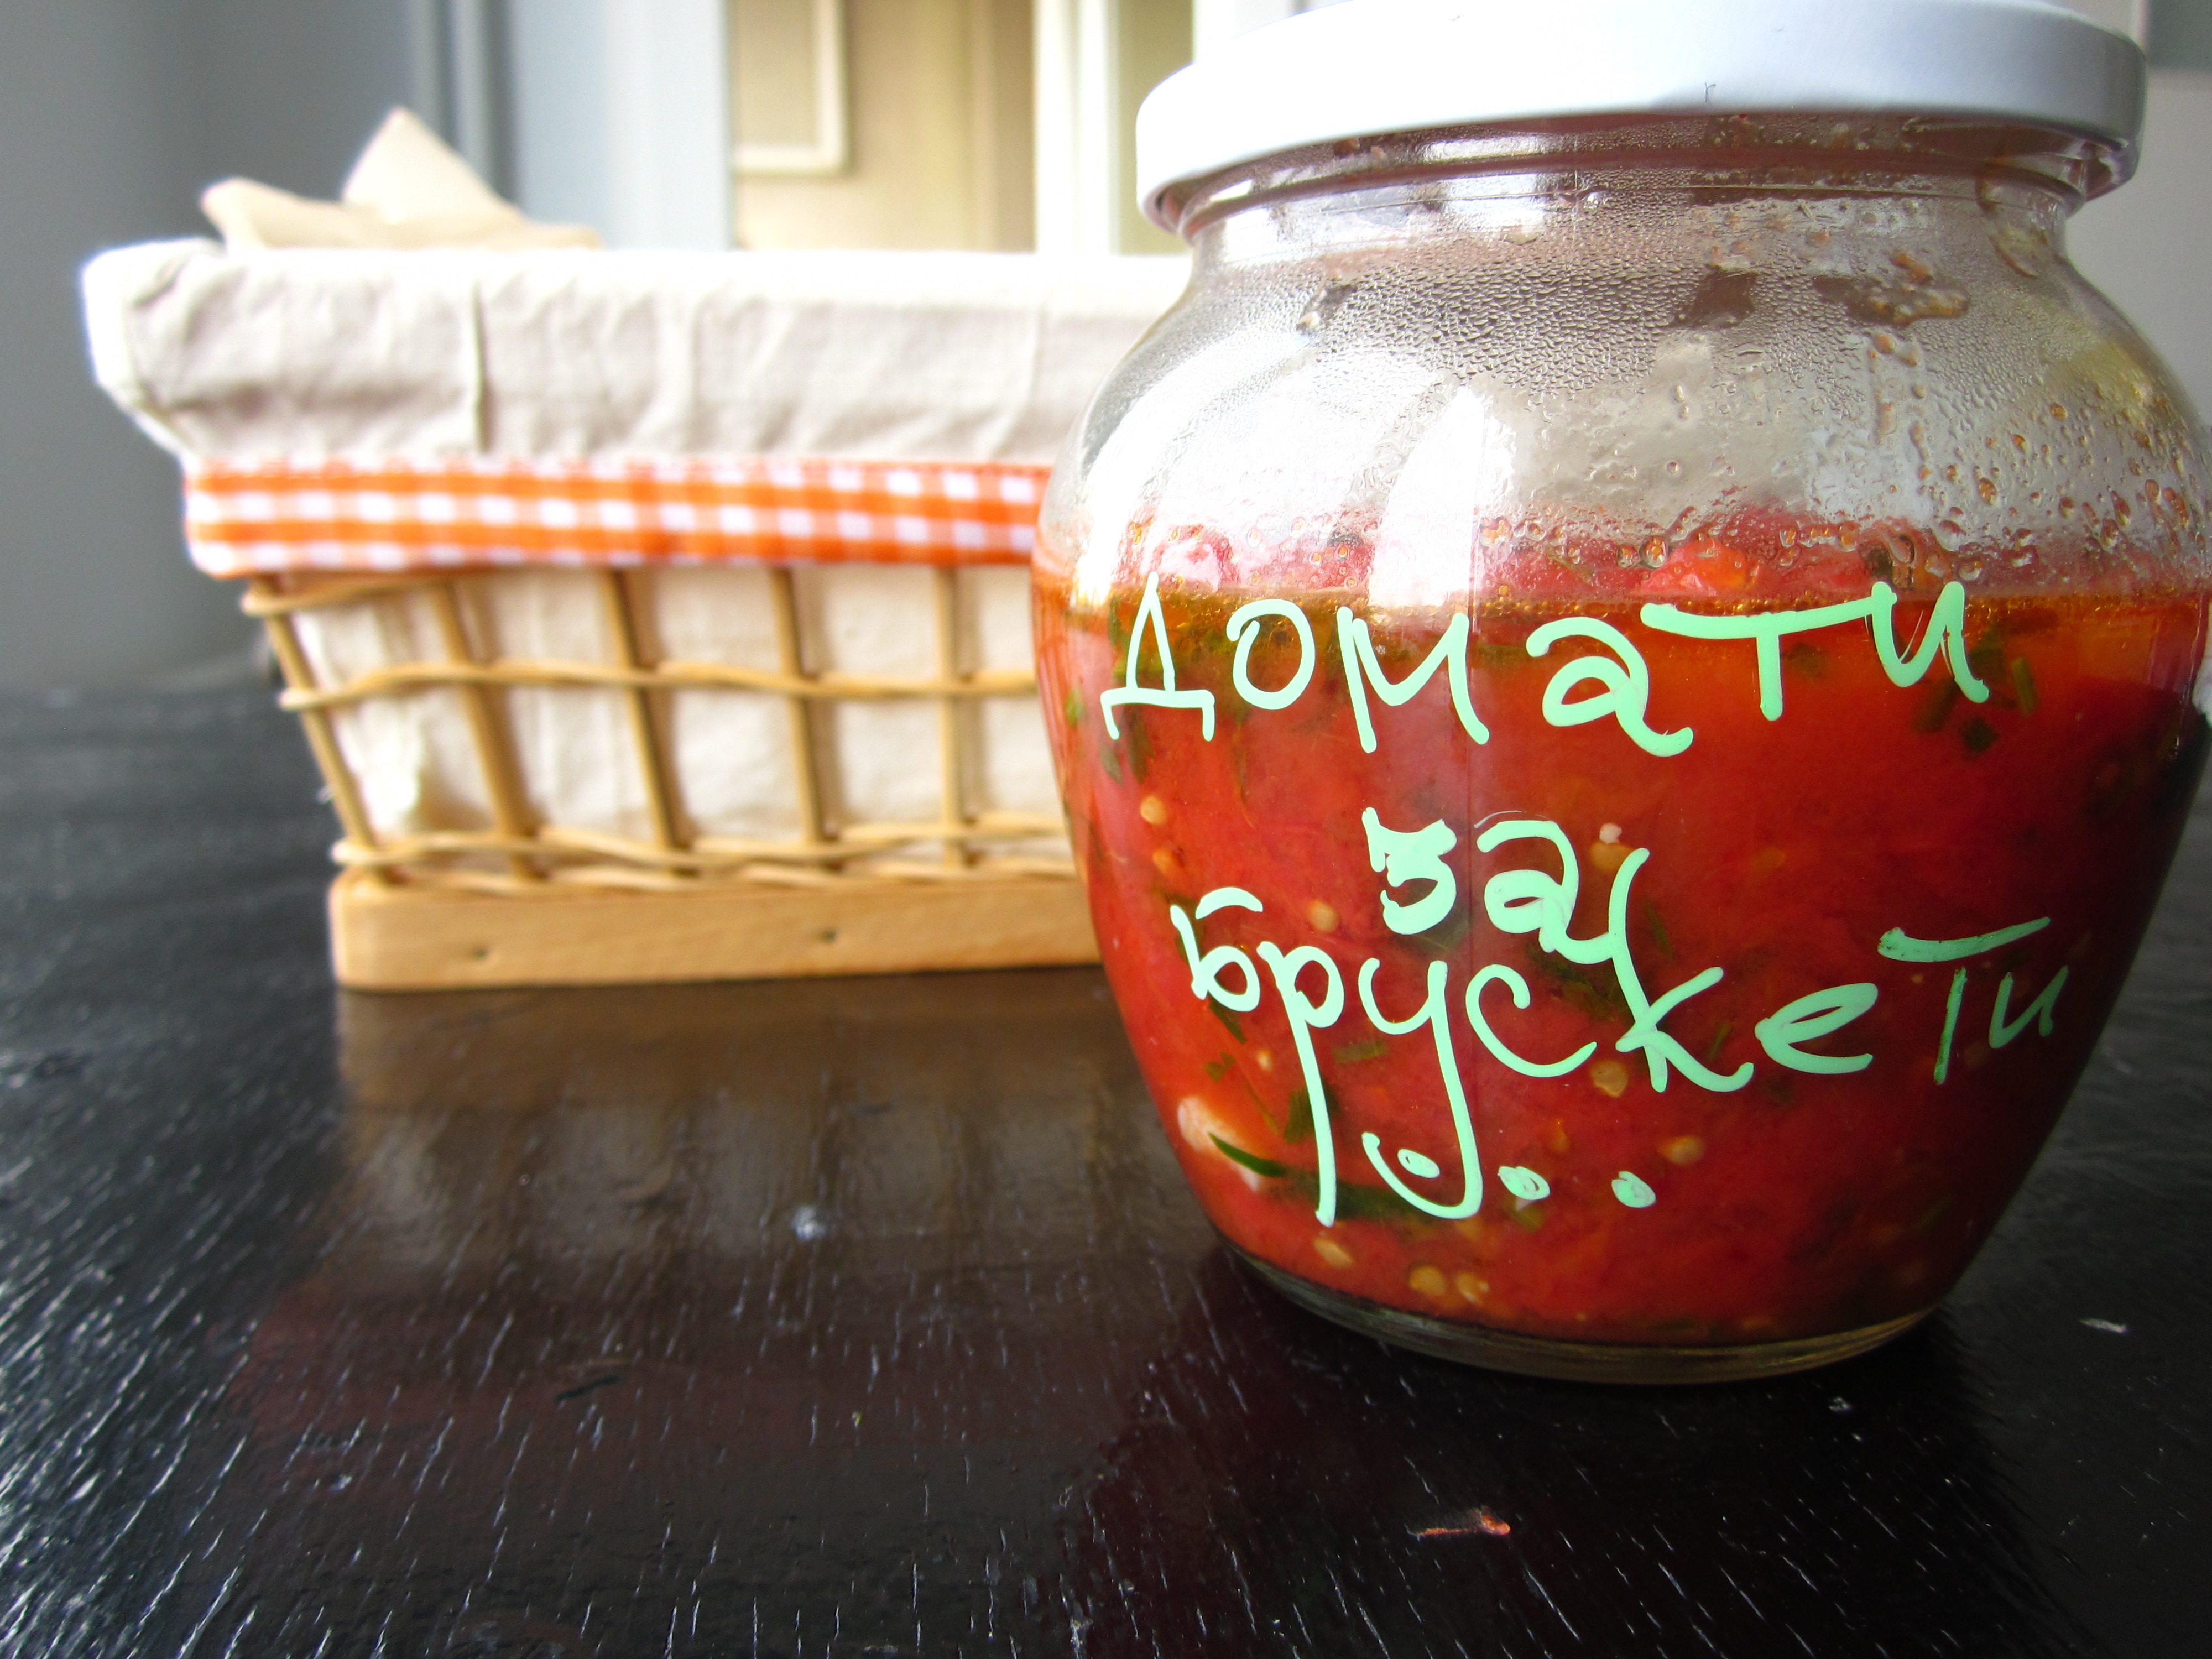 Домати
за
брускети...